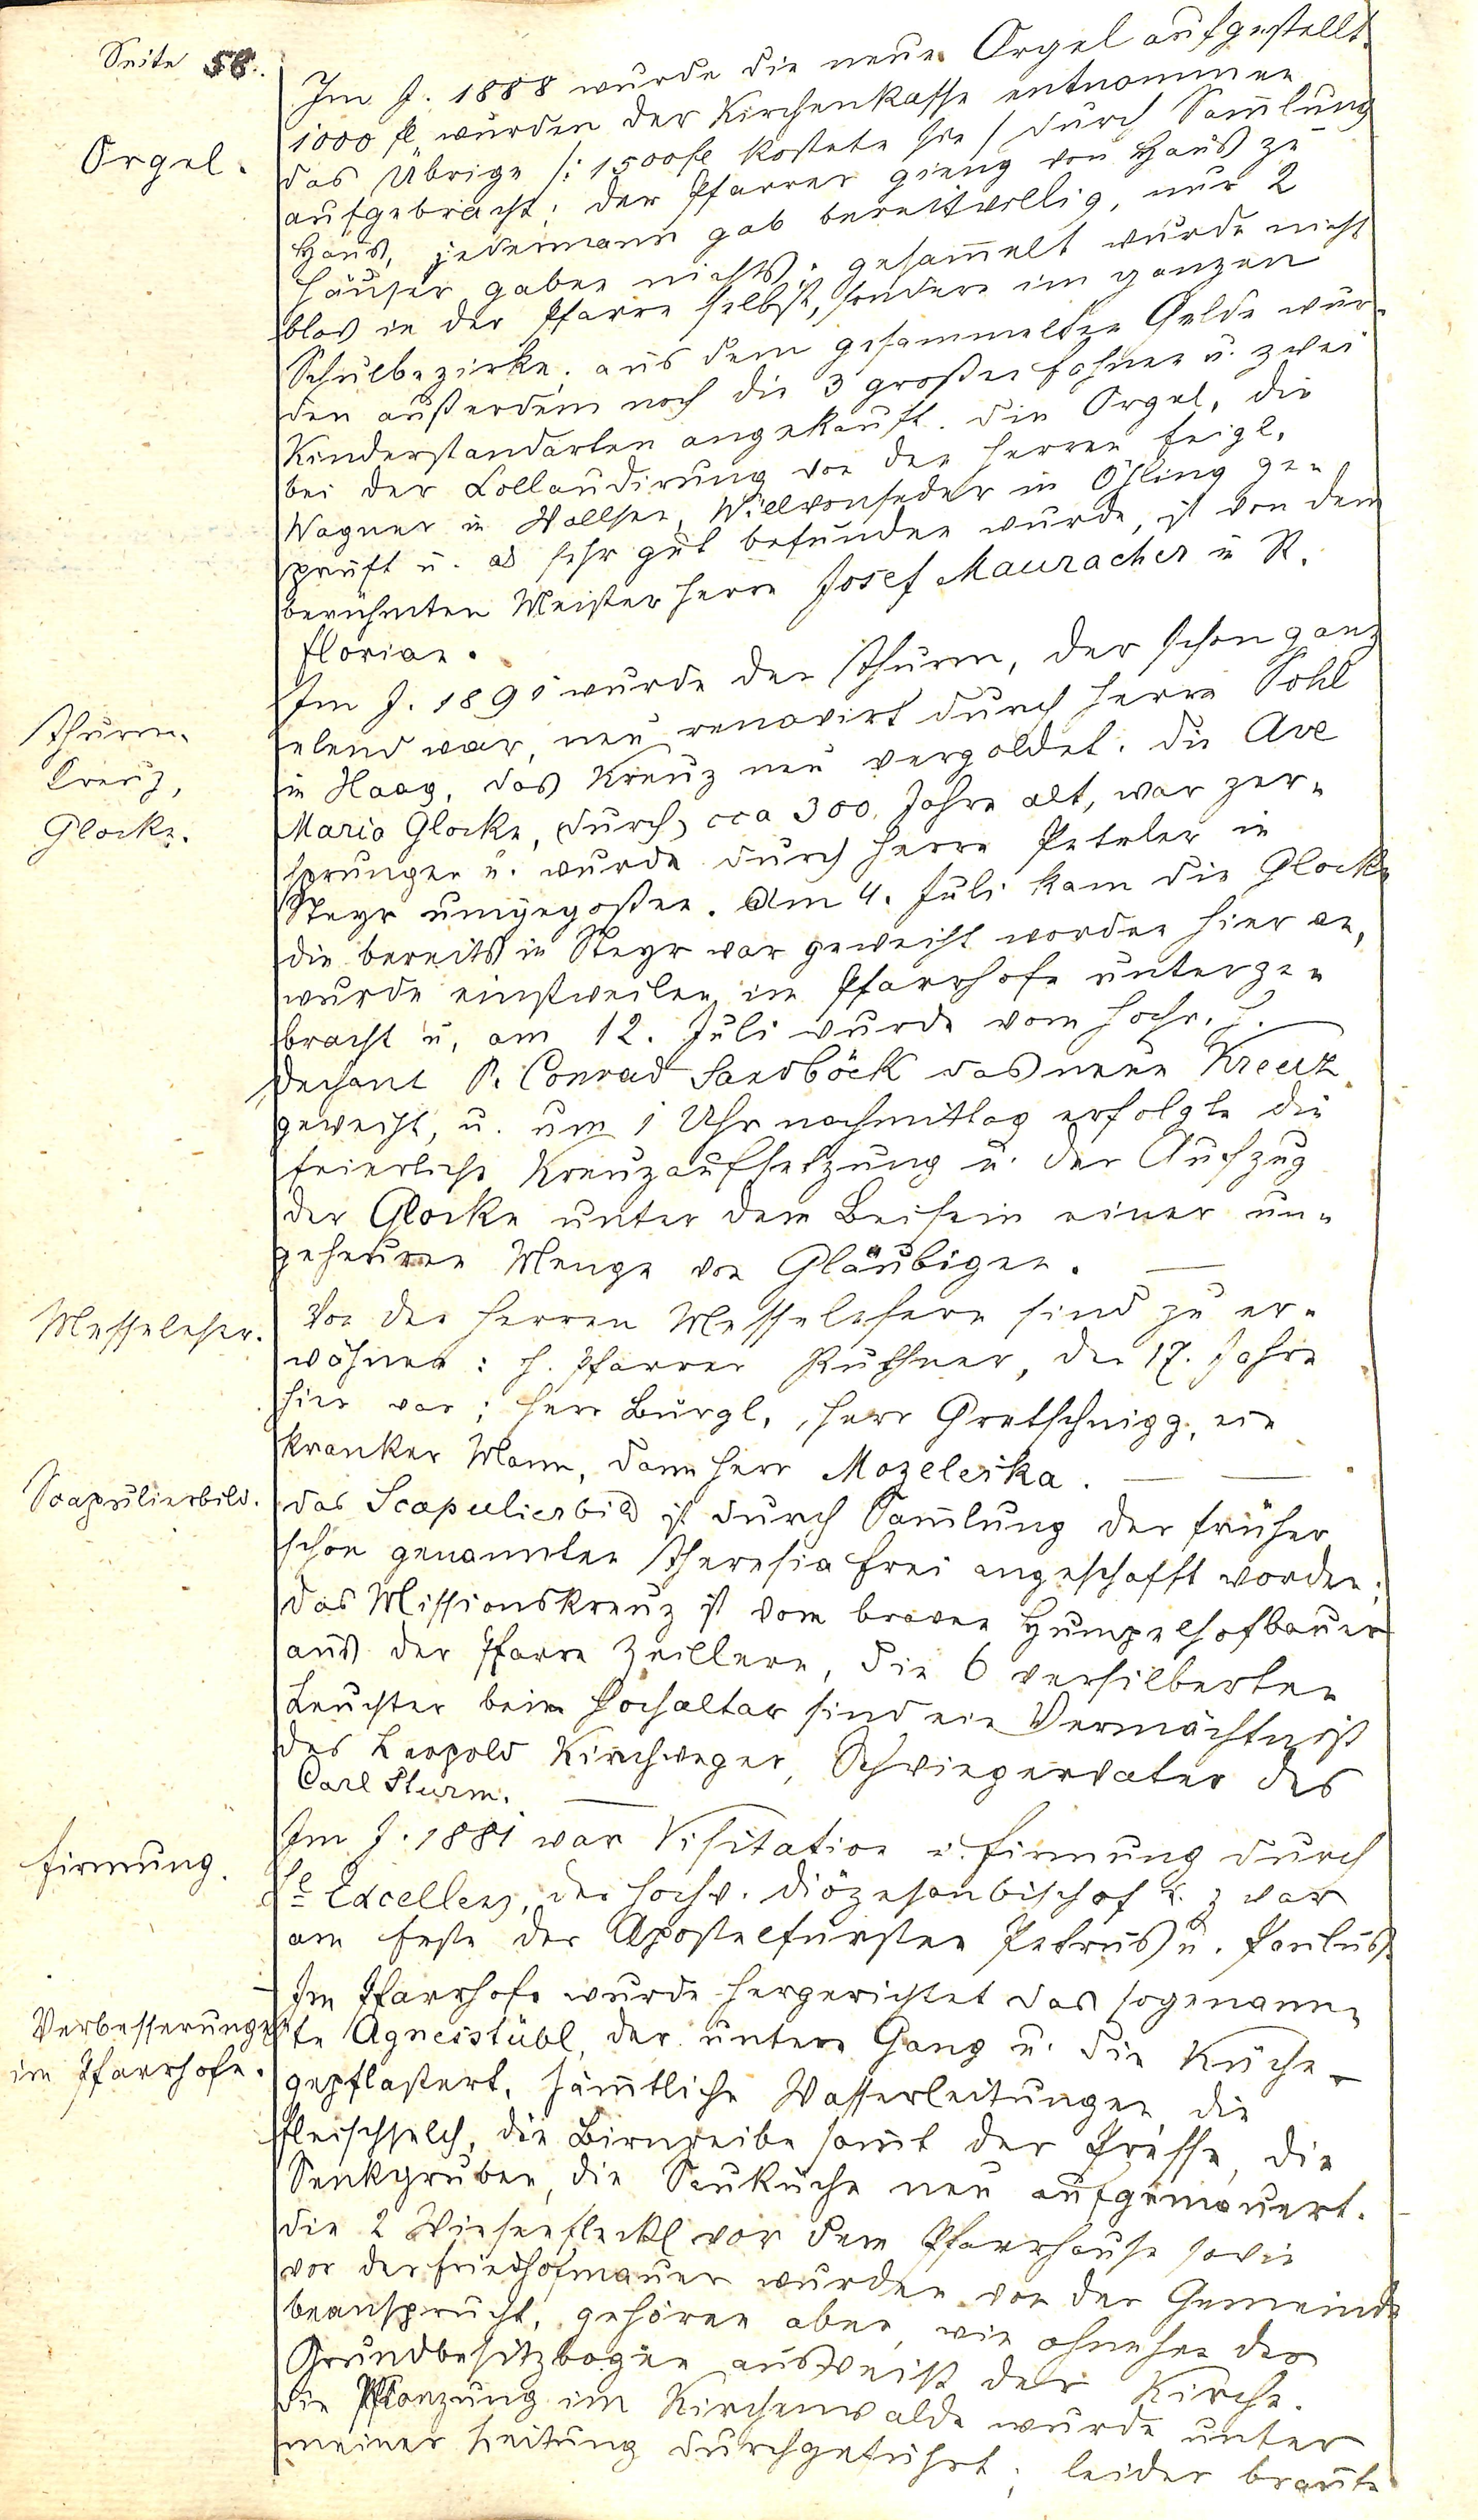 Seite 58.
Orgel.
Im J. 1888 wurde die neue Orgel aufgestellt
1000 fl wurden der Kirchenkasse entnommen
das Übrige /: 1500 fl kostete sie / durch Sam̄lung
aufgebracht; der Pfarrer gieng von Haus zu
Haus, jedermann gab bereitwillig, nur 2
Häuser gaben nichts; gesam̄elt wurde nicht
blos in der Pfarre selbst, sondern im ganzen
Schulbezirke. aus dem gesammelten Gelde wur-
den außerdem noch die 3 großen Fahnen u. zwei
Kinderstandarten angekauft. die Orgel, die
bei der Collaudirung von den Herren Feigl,
Wagner in Wallsee, Willvonseder in Öhling ge-
prüft u. als sehr gut befunden wurde, ist von dem
berühmten Meister Herrn Josef Mauracher in St.
Florian.
Thurm-
Kreuz,
Glocke.
Im J. 1891 wurde der Thurm, der schon ganz
elend war, neu renovirt durch Herrn Sohl
in Haag, das Kreuz neu vergoldet. die Ave
Maria Glocke, durch cca 300 Jahre alt, war zer-
sprungen u. wurde durch Herrn Peteler in
Steyr umgegoßen. Am 4. Juli kam die Glocke
die bereits in Steyr war geweiht worden hier an,
wurde einstweilen im Pfarrhofe unterge-
bracht u. am 12. Juli wurde vom hochw. H.
Dechant P. Conrad Sandböck das neue Kreuz
geweiht, u. um 1 Uhr nachmittag erfolgte die
feierliche Kreuzaufsetzung u. der Aufzug
der Glocke unter dem Beisein einer un-
geheuren Menge von Gläubigen.
Messeleser.
Von den Herren Messelesern sind zu er-
wähnen: H. Pfarrer Puthner, der 17. Jahre
hier war; Herr Bürgl, Herr Gretschnigg, ein
kranker Mann, dann Herr Mozeleska.
Scapulierbild.
das Scapulierbild ist durch Sam̄lung der früher
schon genannten Theresia Frei angeschafft worden;
das Missionskreuz ist vom braven Humpelhofbauer
aus der Pfarre Zeillern, die 6 versilberten
Leuchter beim Hochaltar sind ein Vermächtniß
des Leopold Kirchweger, Schwiegervater des
Carl Sturm.
Firmung.
Im J. 1881 war Visitation u. Firmung durch
Se Excellenz, der hochw. Diözesanbischof u. zwar
am Feste der Apostelfürsten Petrus u. Paulus.
Verbesserungen
im Pfarrhofe.
Im Pfarrhofe wurde hergerichtet das sogenann-
te Agnesstübl, der untere Gang u. die Küche
gepflastert, säm̄tliche Wasserleitungen die
Fleischselch, die Birnreibe sam̄t der Presse, die
Senkgruben, die Sauküche neu aufgemauert.
die 2 Wiesenfleckl vor dem Pfarrhause sowie
vor der Friedhofmauer wurden von der Gemeinde
beansprucht, gehören aber, wie ohnehin der
Grundbesitzbogen ausweist der Kirche.
die Pflanzung im Kirchenwalde wurde unter
meiner Leitung durchgeführt; leider braute